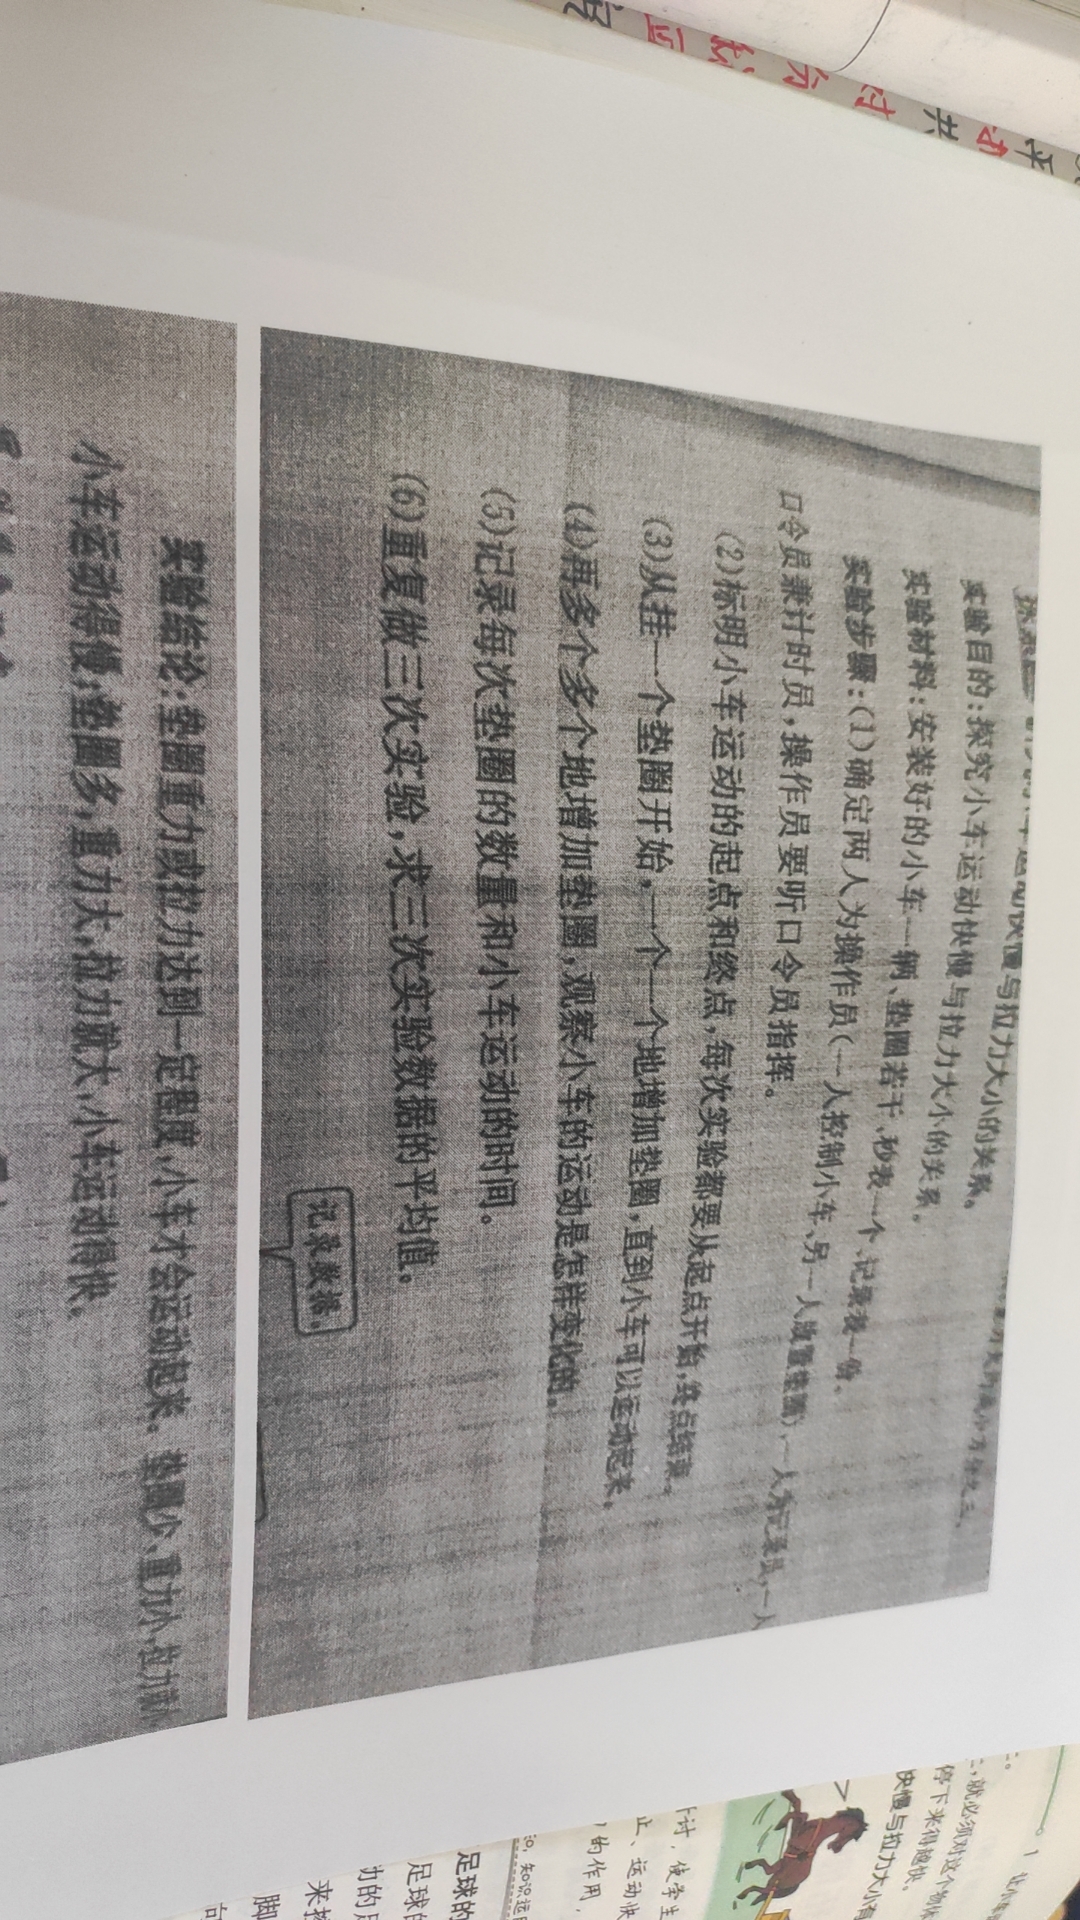 小车运动快慢与拉力大小的关系。
实验目的:探究小车运动快慢与拉力大小的关系。
实验材料:安装好的小车一辆、垫圈若干、秒表一个、记录表一份。
实验步骤:(1)确定两人为操作员(一人控制小车、另一人放置垫圈),一人为记录员,一人
口令员兼计时员,操作员要听口令员指挥。
(2)标明小车运动的起点和终点,每次实验都要从起点开始,终点结束。
(3)从挂一个垫圈开始,一个一个地增加垫圈,直到小车可以运动起来。
(4)再多个多个地增加垫圈,观察小车的运动是怎样变化的。
(5)记录每次垫圈的数量和小车运动的时间。
(6)重复做三次实验,求三次实验数据的平均值。
记录数据。
实验结论:垫圈重力或拉力达到一定程度,小车才会运动起来。垫圈少,重力小,拉力就小
小车运动得慢;垫圈多,重力大,拉力就大,小车运动得快。
就必须对这个物体
停下来得越快。
快慢与拉力大小有
计,使学生
止、运动快
的作用,
知识运用
足球的
足球的
来
脚